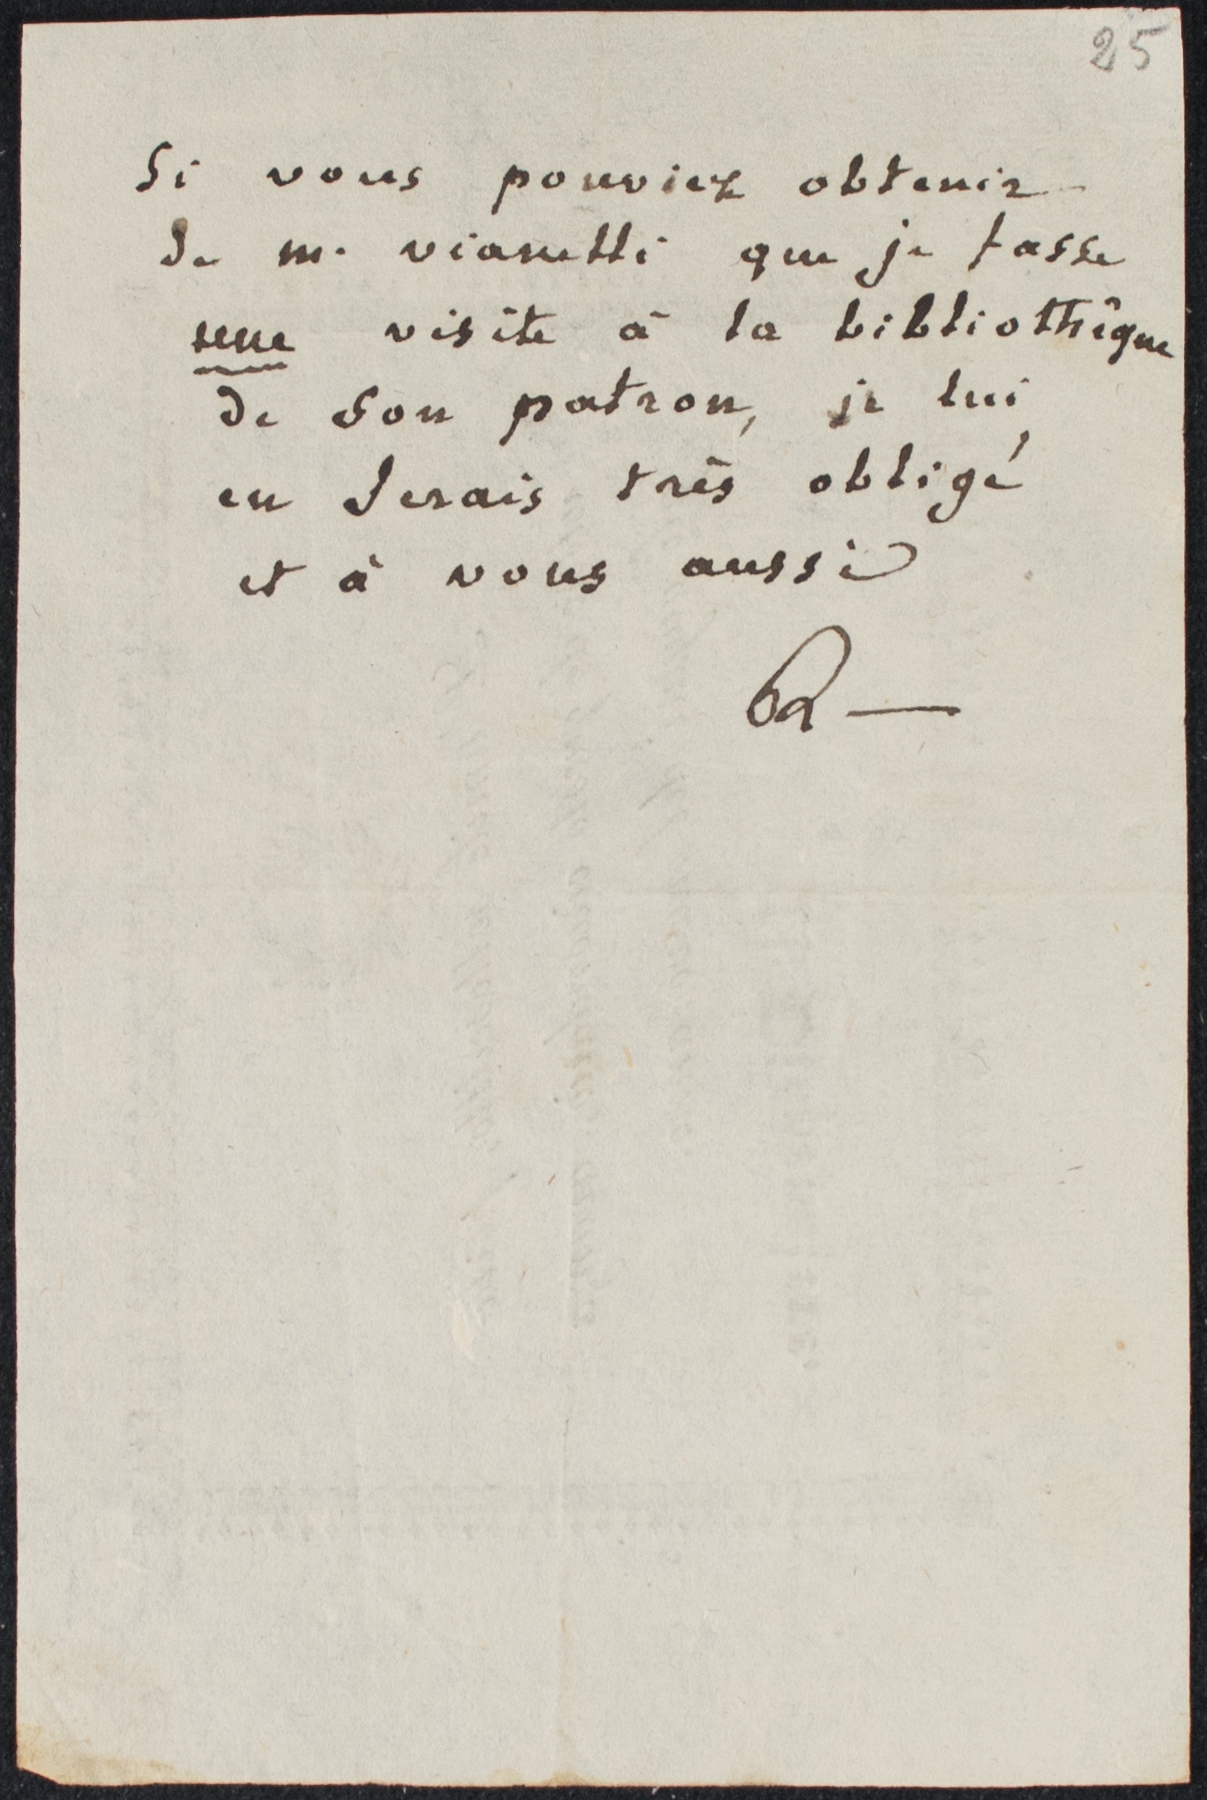 25
Si vous pouviez obtenir
de m. vianelli que je fasse
une visite à la bibliothèque
de son patron, je lui
en serais très obligé
et à vous aussi